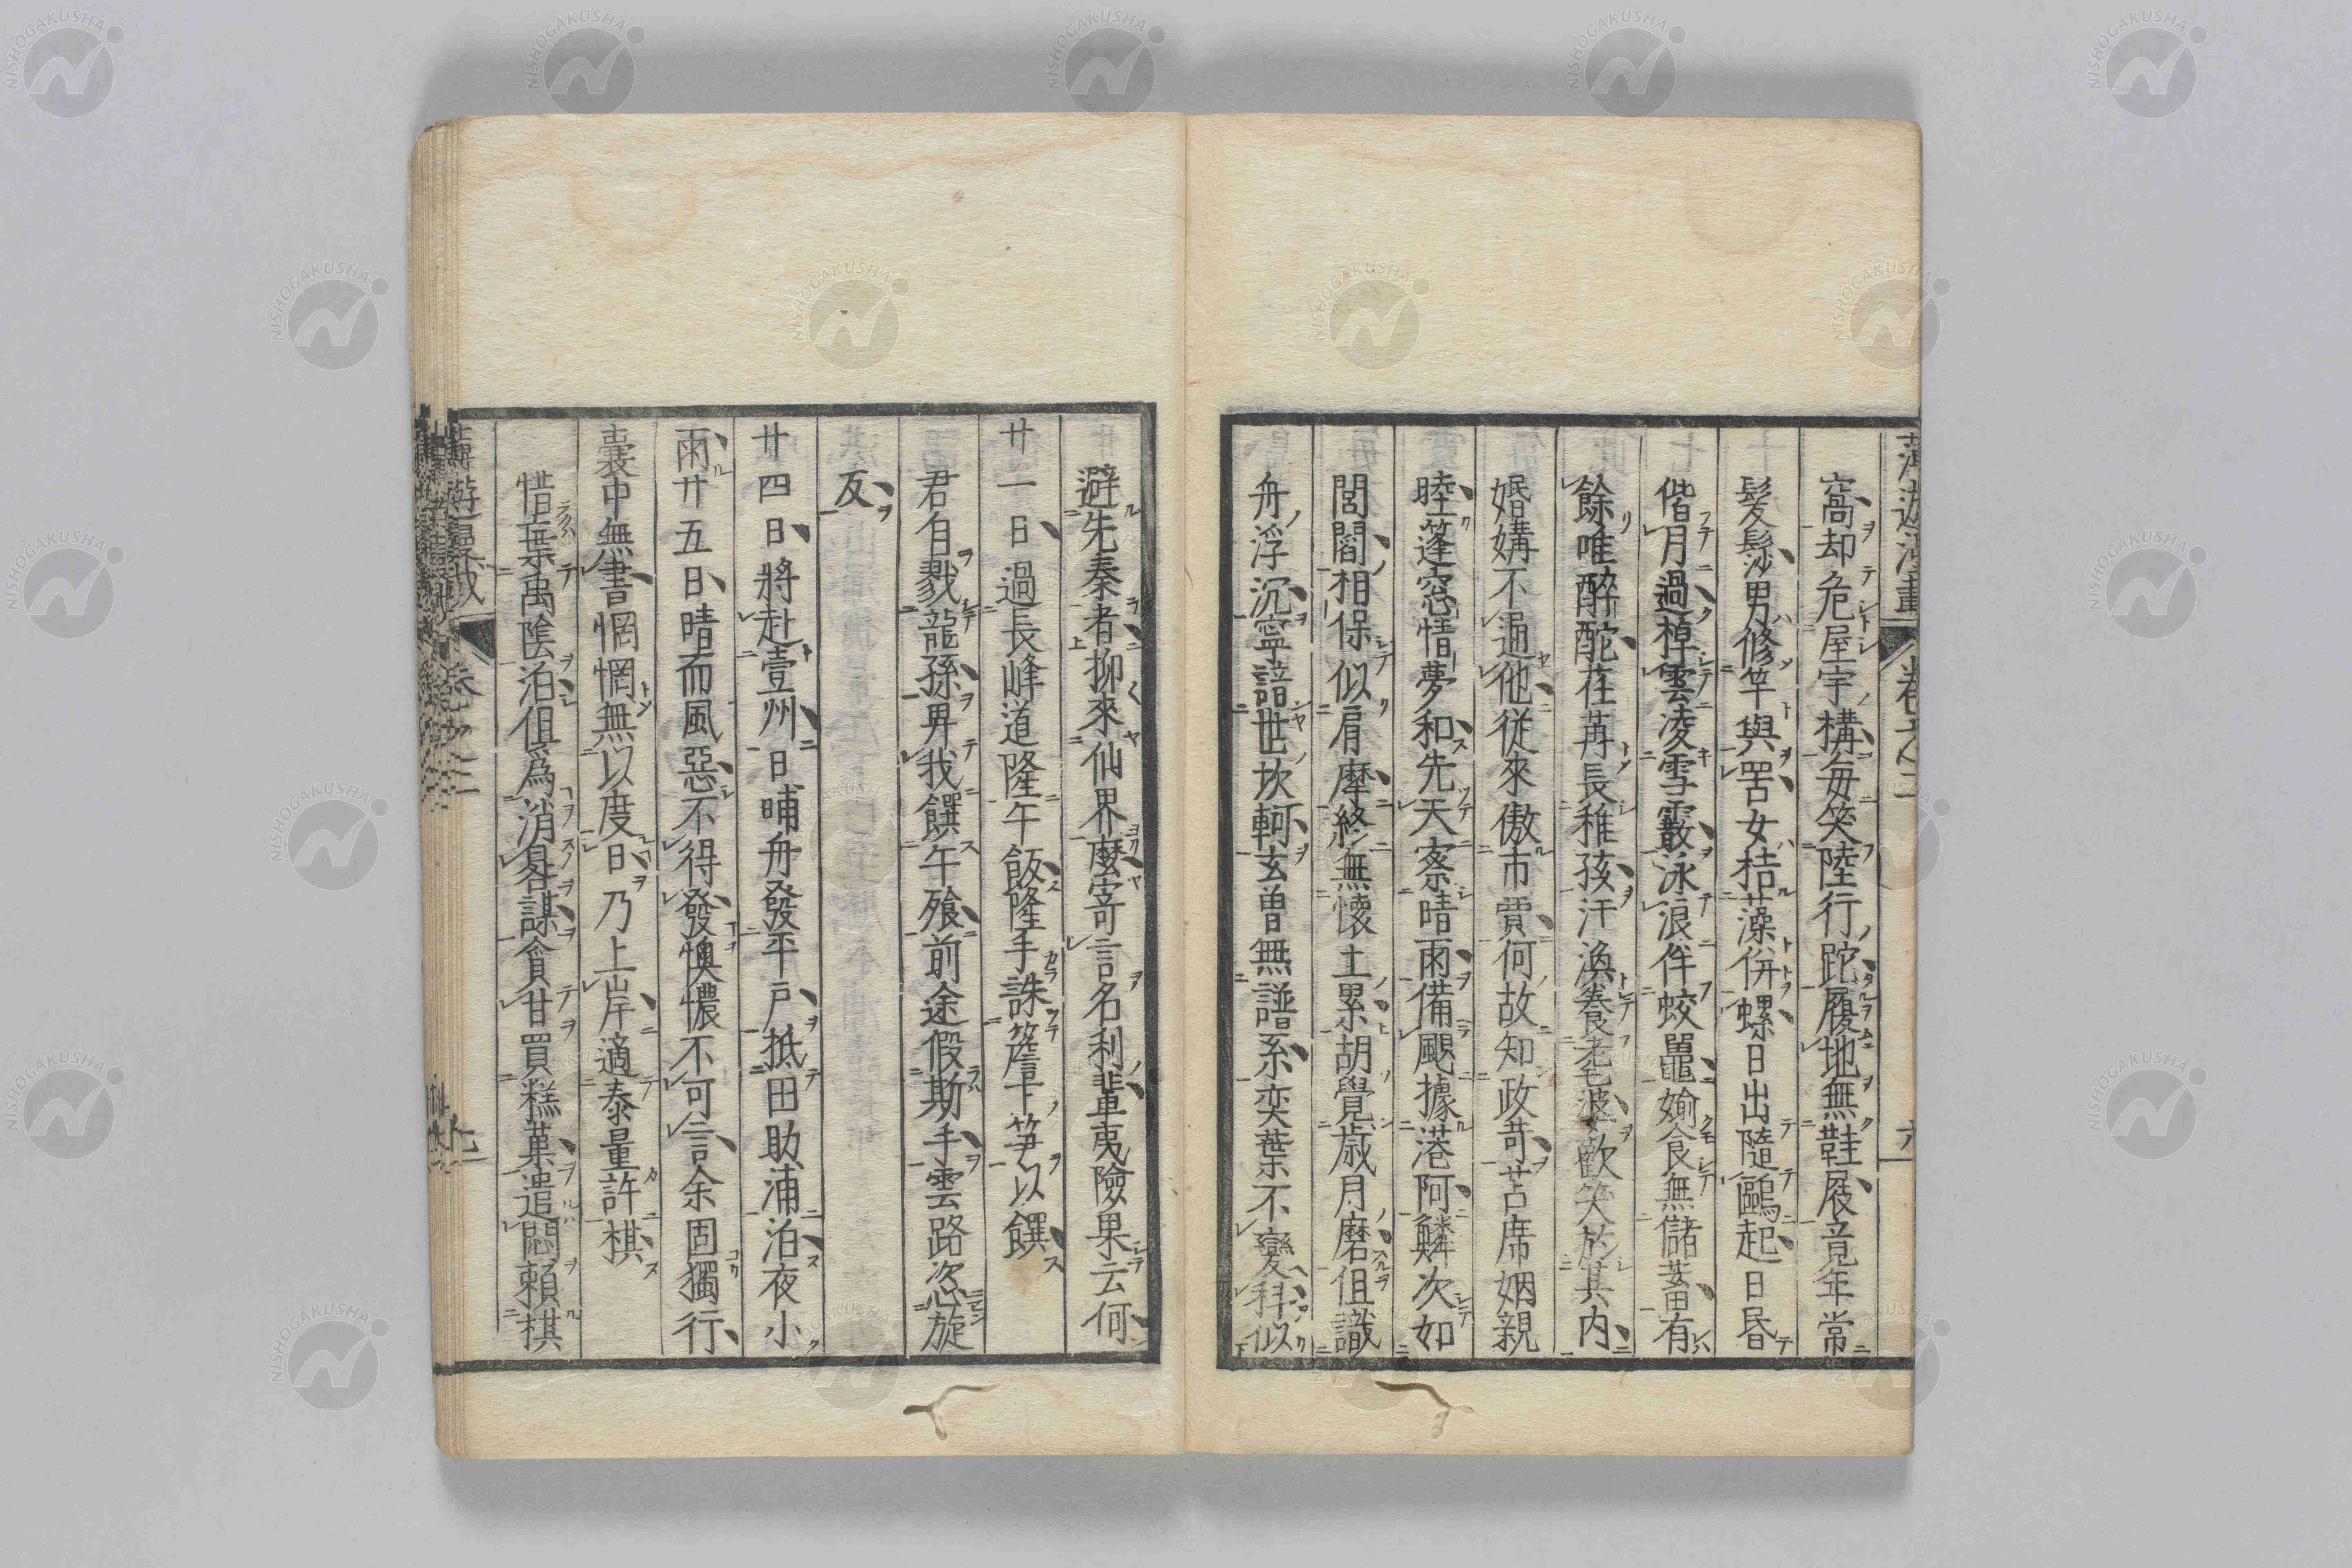 窩却危屋宇構毎笑陸行跎履地無鞋屐竟年常
髪髿男修竿與罟女拮藻併螺日出隨鷗起日昏
偕月過棹雲凌雪霰泳浪伴蛟鼉婾食無儲蓄有
餘唯醉酡荏苒長稚孩汗渙養老婆歡笑於其内
婚媾不通他從來傲市賈何故知政苛苫席姻親
睦篷窓惜夢和先天察晴雨備颶據港阿鱗次如
閭閻相保似肩摩終無懷土累胡覺歳月磨伹識
舟浮沉寧諳世坎軻玄曽無譜系奕葉不變科似
避先秦者抑來仙界麼寄言名利輩夷險果云何
廿一日過長峰道隆午飯隆手誅簷下笋以饌
君自戮龍孫畀我饌午飱前途假斯手雲路恣旋
反
廿四日將赴壹州日晡舟發平戸抵田助浦泊夜小
雨廿五日晴而風惡不得發懊憹不可言余固獨行
嚢中無書惘惘無以度日乃上岸適泰量許棋
惜葉禹陰泊伹爲消晷謀貪甘買糕菓遣悶頼棋